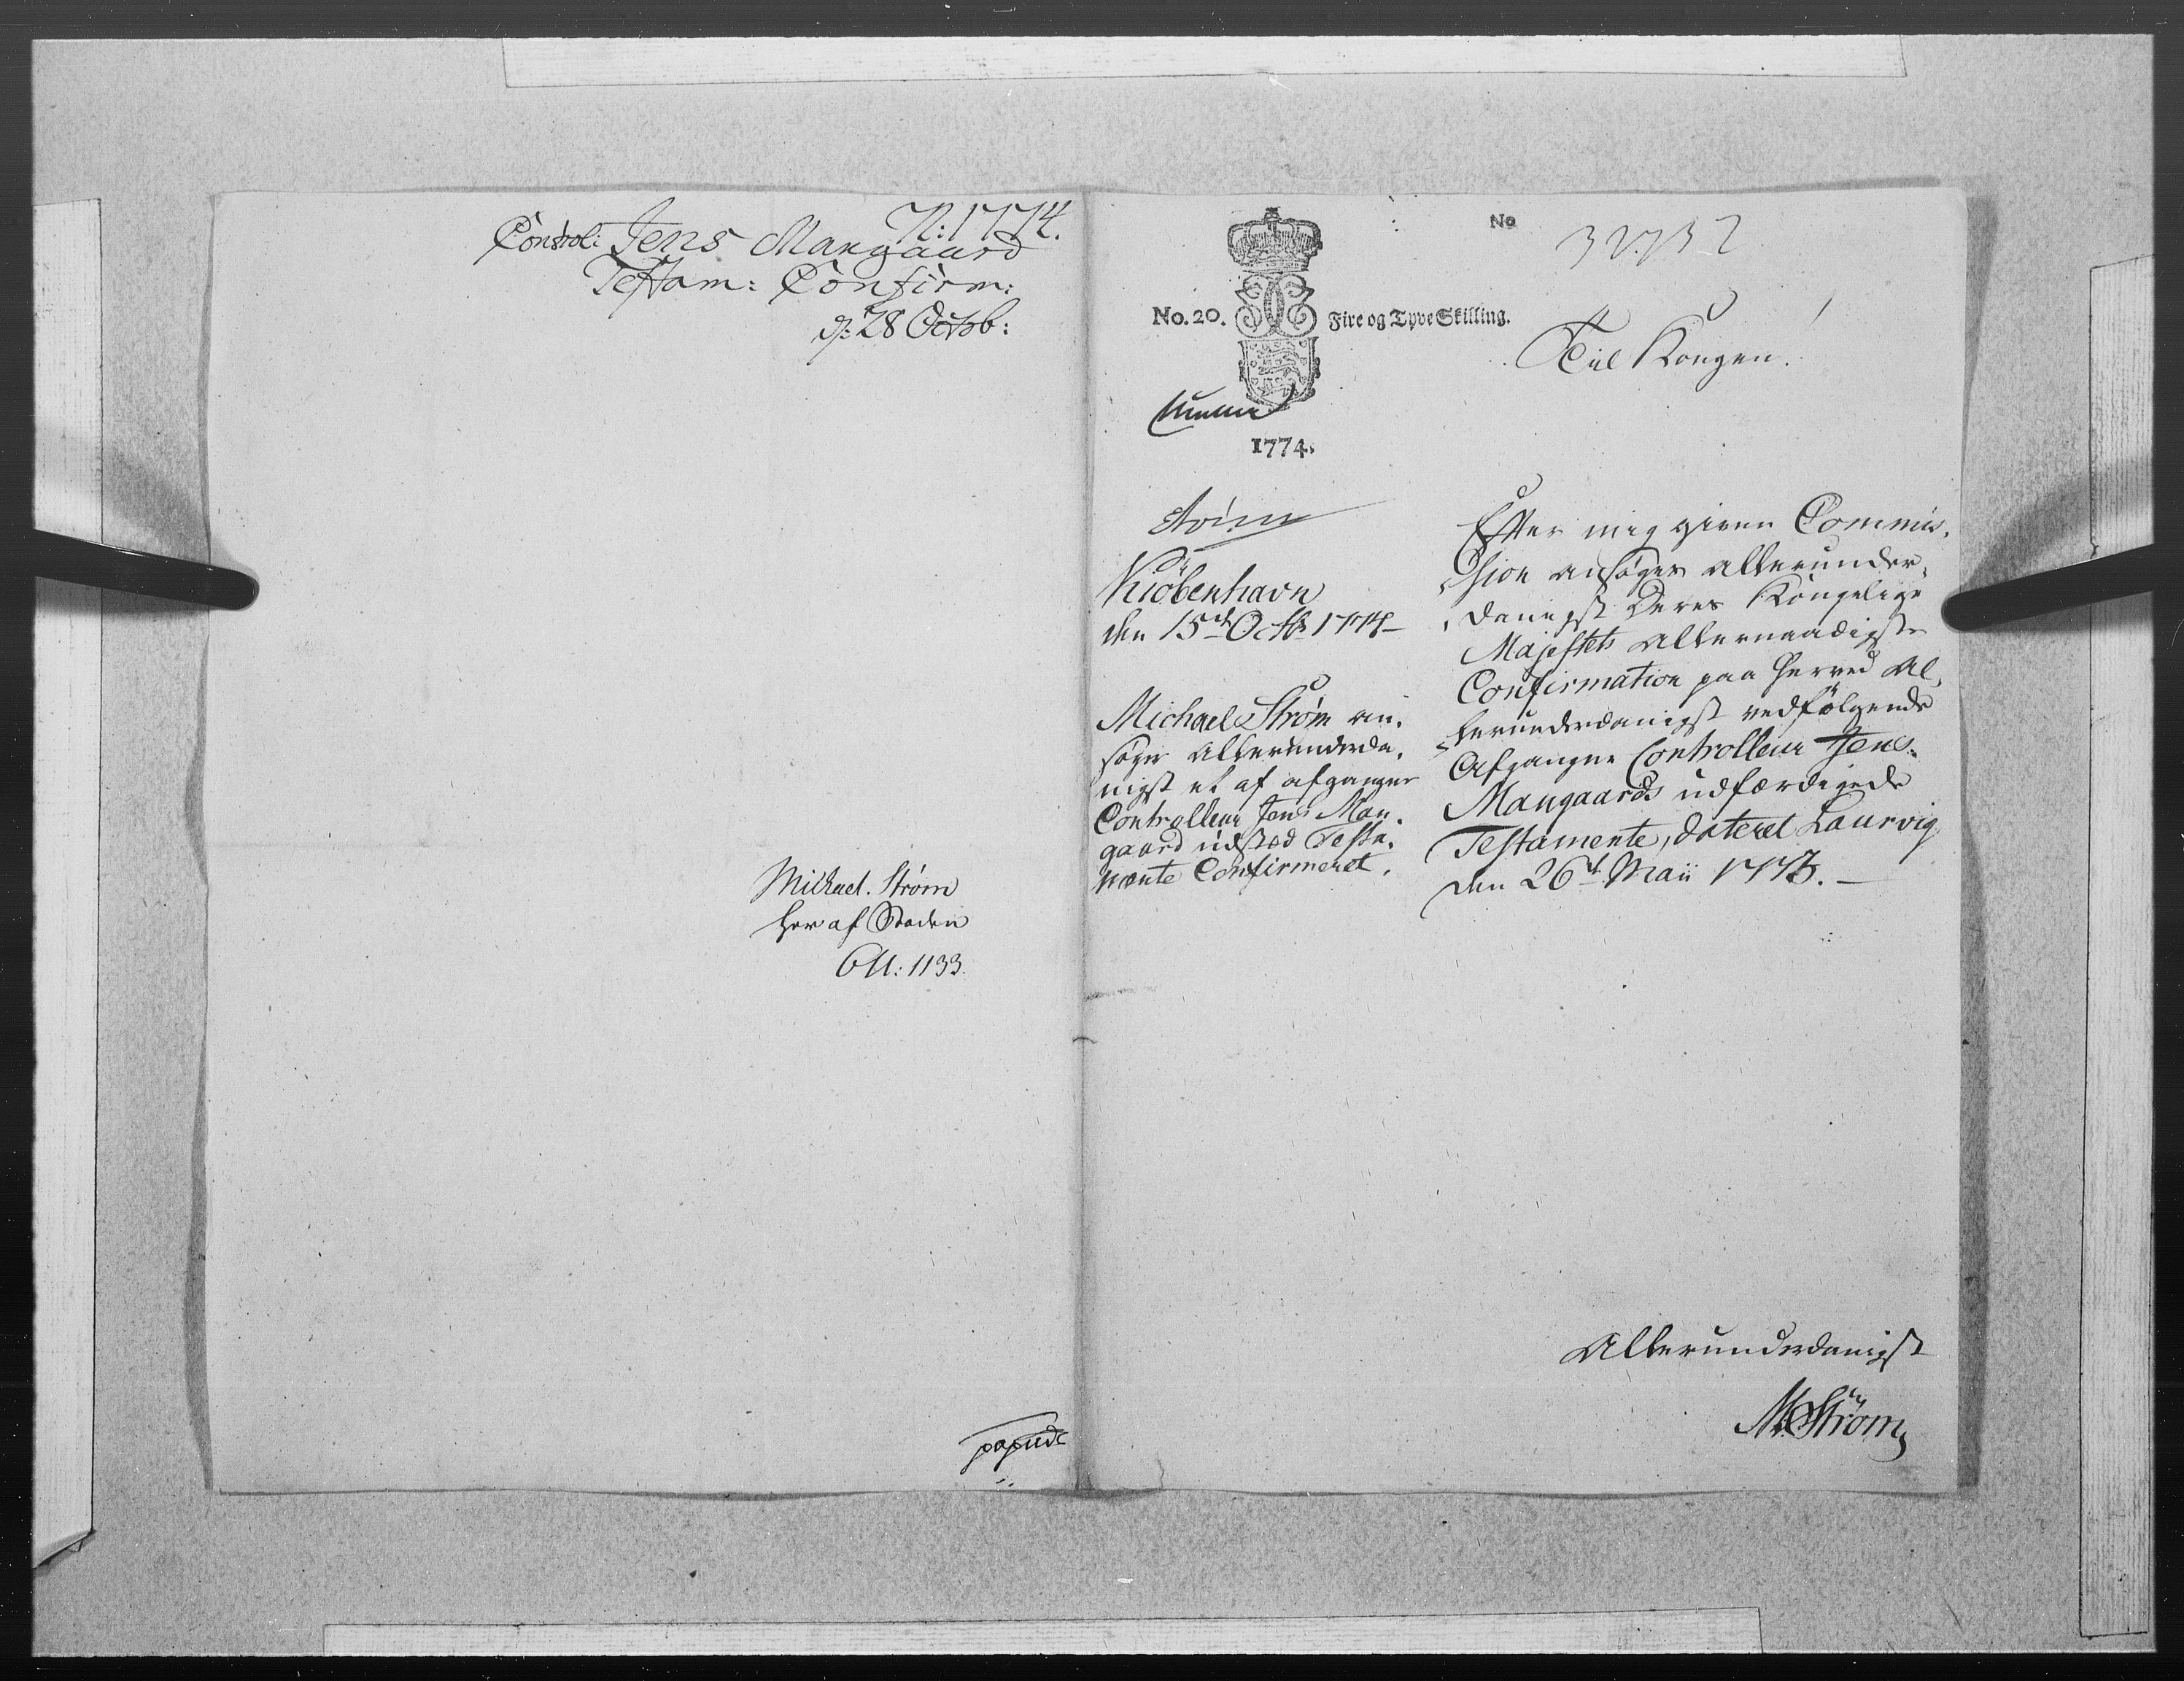 N: 1774.
Control: Jens Mangaard
Testam: Confirm:
d: 28 Octob:
Michael. Strøm
her af Staden
No
No. 20. Fire og Tyve Skilling.
Til Kongen.
1774.
Kiöbenhavn
den 15de Octbr 1774
Michael Strøm an-
søger allerunderda-
nigst et af afgangne
Controlleur Jens Man-
gaard udstæd Testa-
mente Confirmeret.
Efter mig given Commis-
sion ansøges allerunder-
danigst Deres Kongelige
Majestets allernaadigste
Confirmation paa herved al-
lerunderdanigst vedfølgende
Afgangne Controlleur Jens
Mangaards udfærdigede
Testamente, dateret Laurvig
den 26d Maii 1773.
Allerunderdanigst
M. Strøm